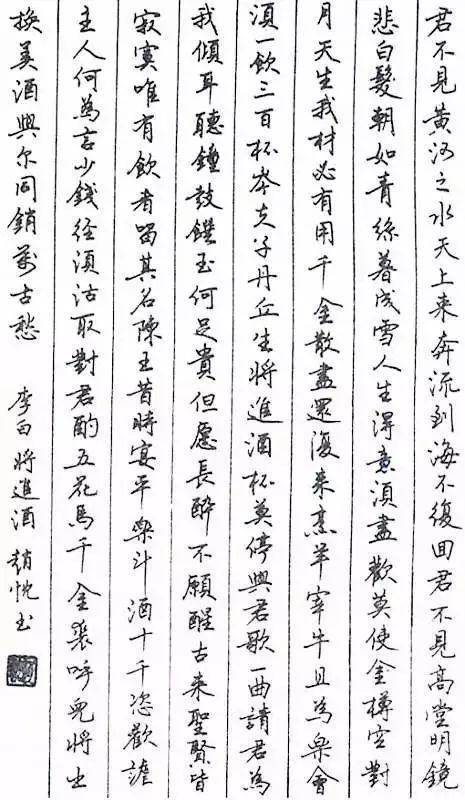 君不見黃河之水天上来奔流到海不復回君不見高堂明鏡
悲白髮朝如青絲暮成雪人生得意須盡歡莫使金樽空對
月天生我材必有用千金散盡還復来烹羊宰牛且為樂會
須一飲三百杯岑夫子丹丘生將進酒杯莫停與君歌一曲請君為
我傾耳聽鐘鼓饌玉何足貴但愿長醉不願醒古来聖賢皆
寂寞唯有飲者留其名陳王昔時宴平樂斗酒十千恣歡謔
主人何為言少錢径須沽取對君酌五花馬千金裘呼兒將出
換美酒與尔同銷萬古愁 李白將進酒 趙